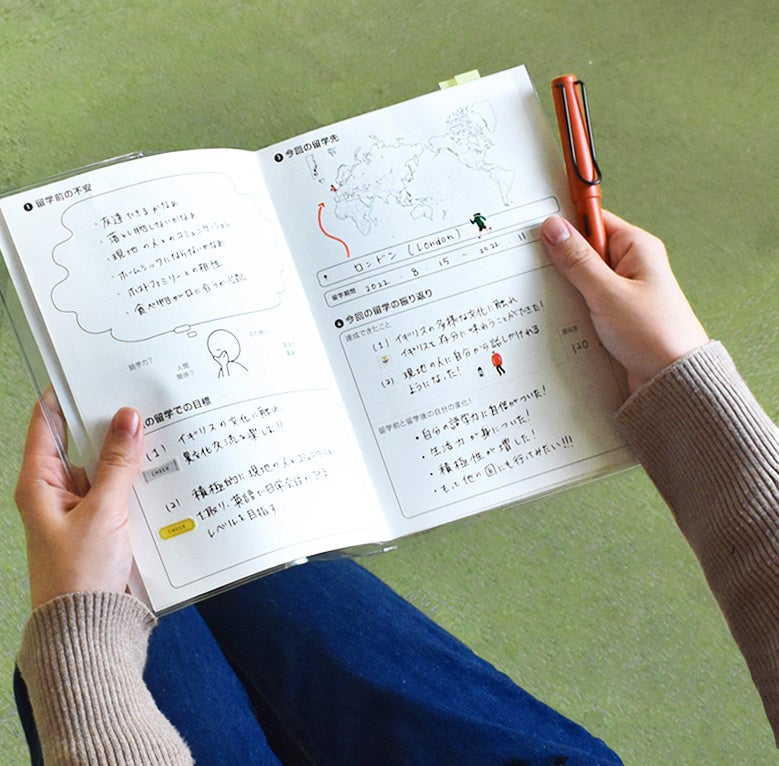 ❶ 留学前の不安
・友達できるかなぁ
・落とし物しないかなぁ
・現地の人とのコミュニケーション
・ホームシックにならないかなぁ
・ホストファミリーとの相性
・食べ物が口に合うか心配
語学力?
人間
関係?
の留学での目標
(1) イギリスの文化に触れ
異文化交流を楽しむ!!
CHECK
(2) 積極的に現地の人とコミュニケーション
を取り、英語が日常会話ができる
レベルを目指す
CHECK
❸ 今回の留学先
ロンドン (London)
留学期間 2022 . 8 . 15 ~ 2022 . 11
❹ 今回の留学の振り返り
達成できたこと
(1) イギリスの多様な文化に触れ
イギリスを存分に味わうことができた!
(2) 現地の人に自分から話しかけれる
ようになった!
達成率
120
留学前と留学後の自分の変化!
・自分の語学力に自信がついた!
・生活力が身についた!
・積極性が増した!
・もっと他の国にも行ってみたい!!!